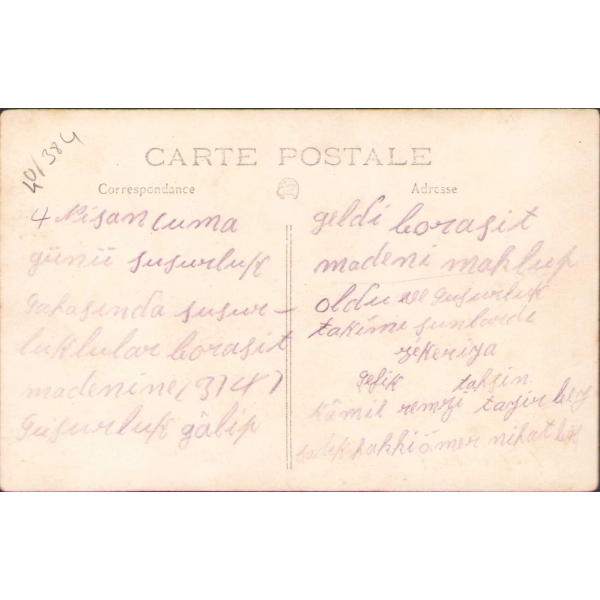 40/384
CARTE POSTALE
Correspondance
Adresse
4 Nisan cuma
günü susurluk
sahasında susur-
luklular borasit
madenine (3)(4)
susurluk gâlip
geldi borasit
madeni mahlup
oldu ve susurluk
takimi sunlardi
zekeriya
refik tahsin
kâmil remzi
hakki ömer nihat